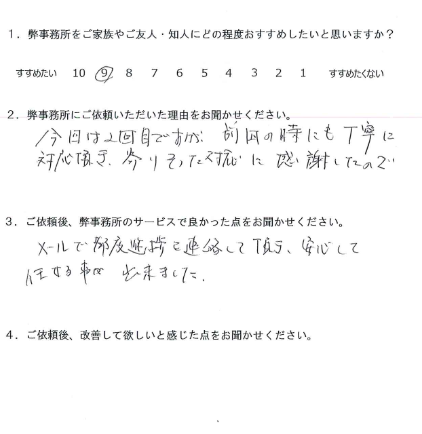 1．弊事務所をご家族やご友人・知人にどの程度おすすめしたいと思いますか？
すすめたい 10 9 8 7 6 5 4 3 2 1 すすめたくない
2．弊事務所にご依頼いただいた理由をお聞かせください。
今回は2回目ですが、前回の時にも丁寧に
対応頂き、寄りそった対応に感謝したので
3．ご依頼後、弊事務所のサービスで良かった点をお聞かせください。
メールで都度進捗を連絡して頂き、安心して
任せる事が出来ました。
4．ご依頼後、改善して欲しいと感じた点をお聞かせください。